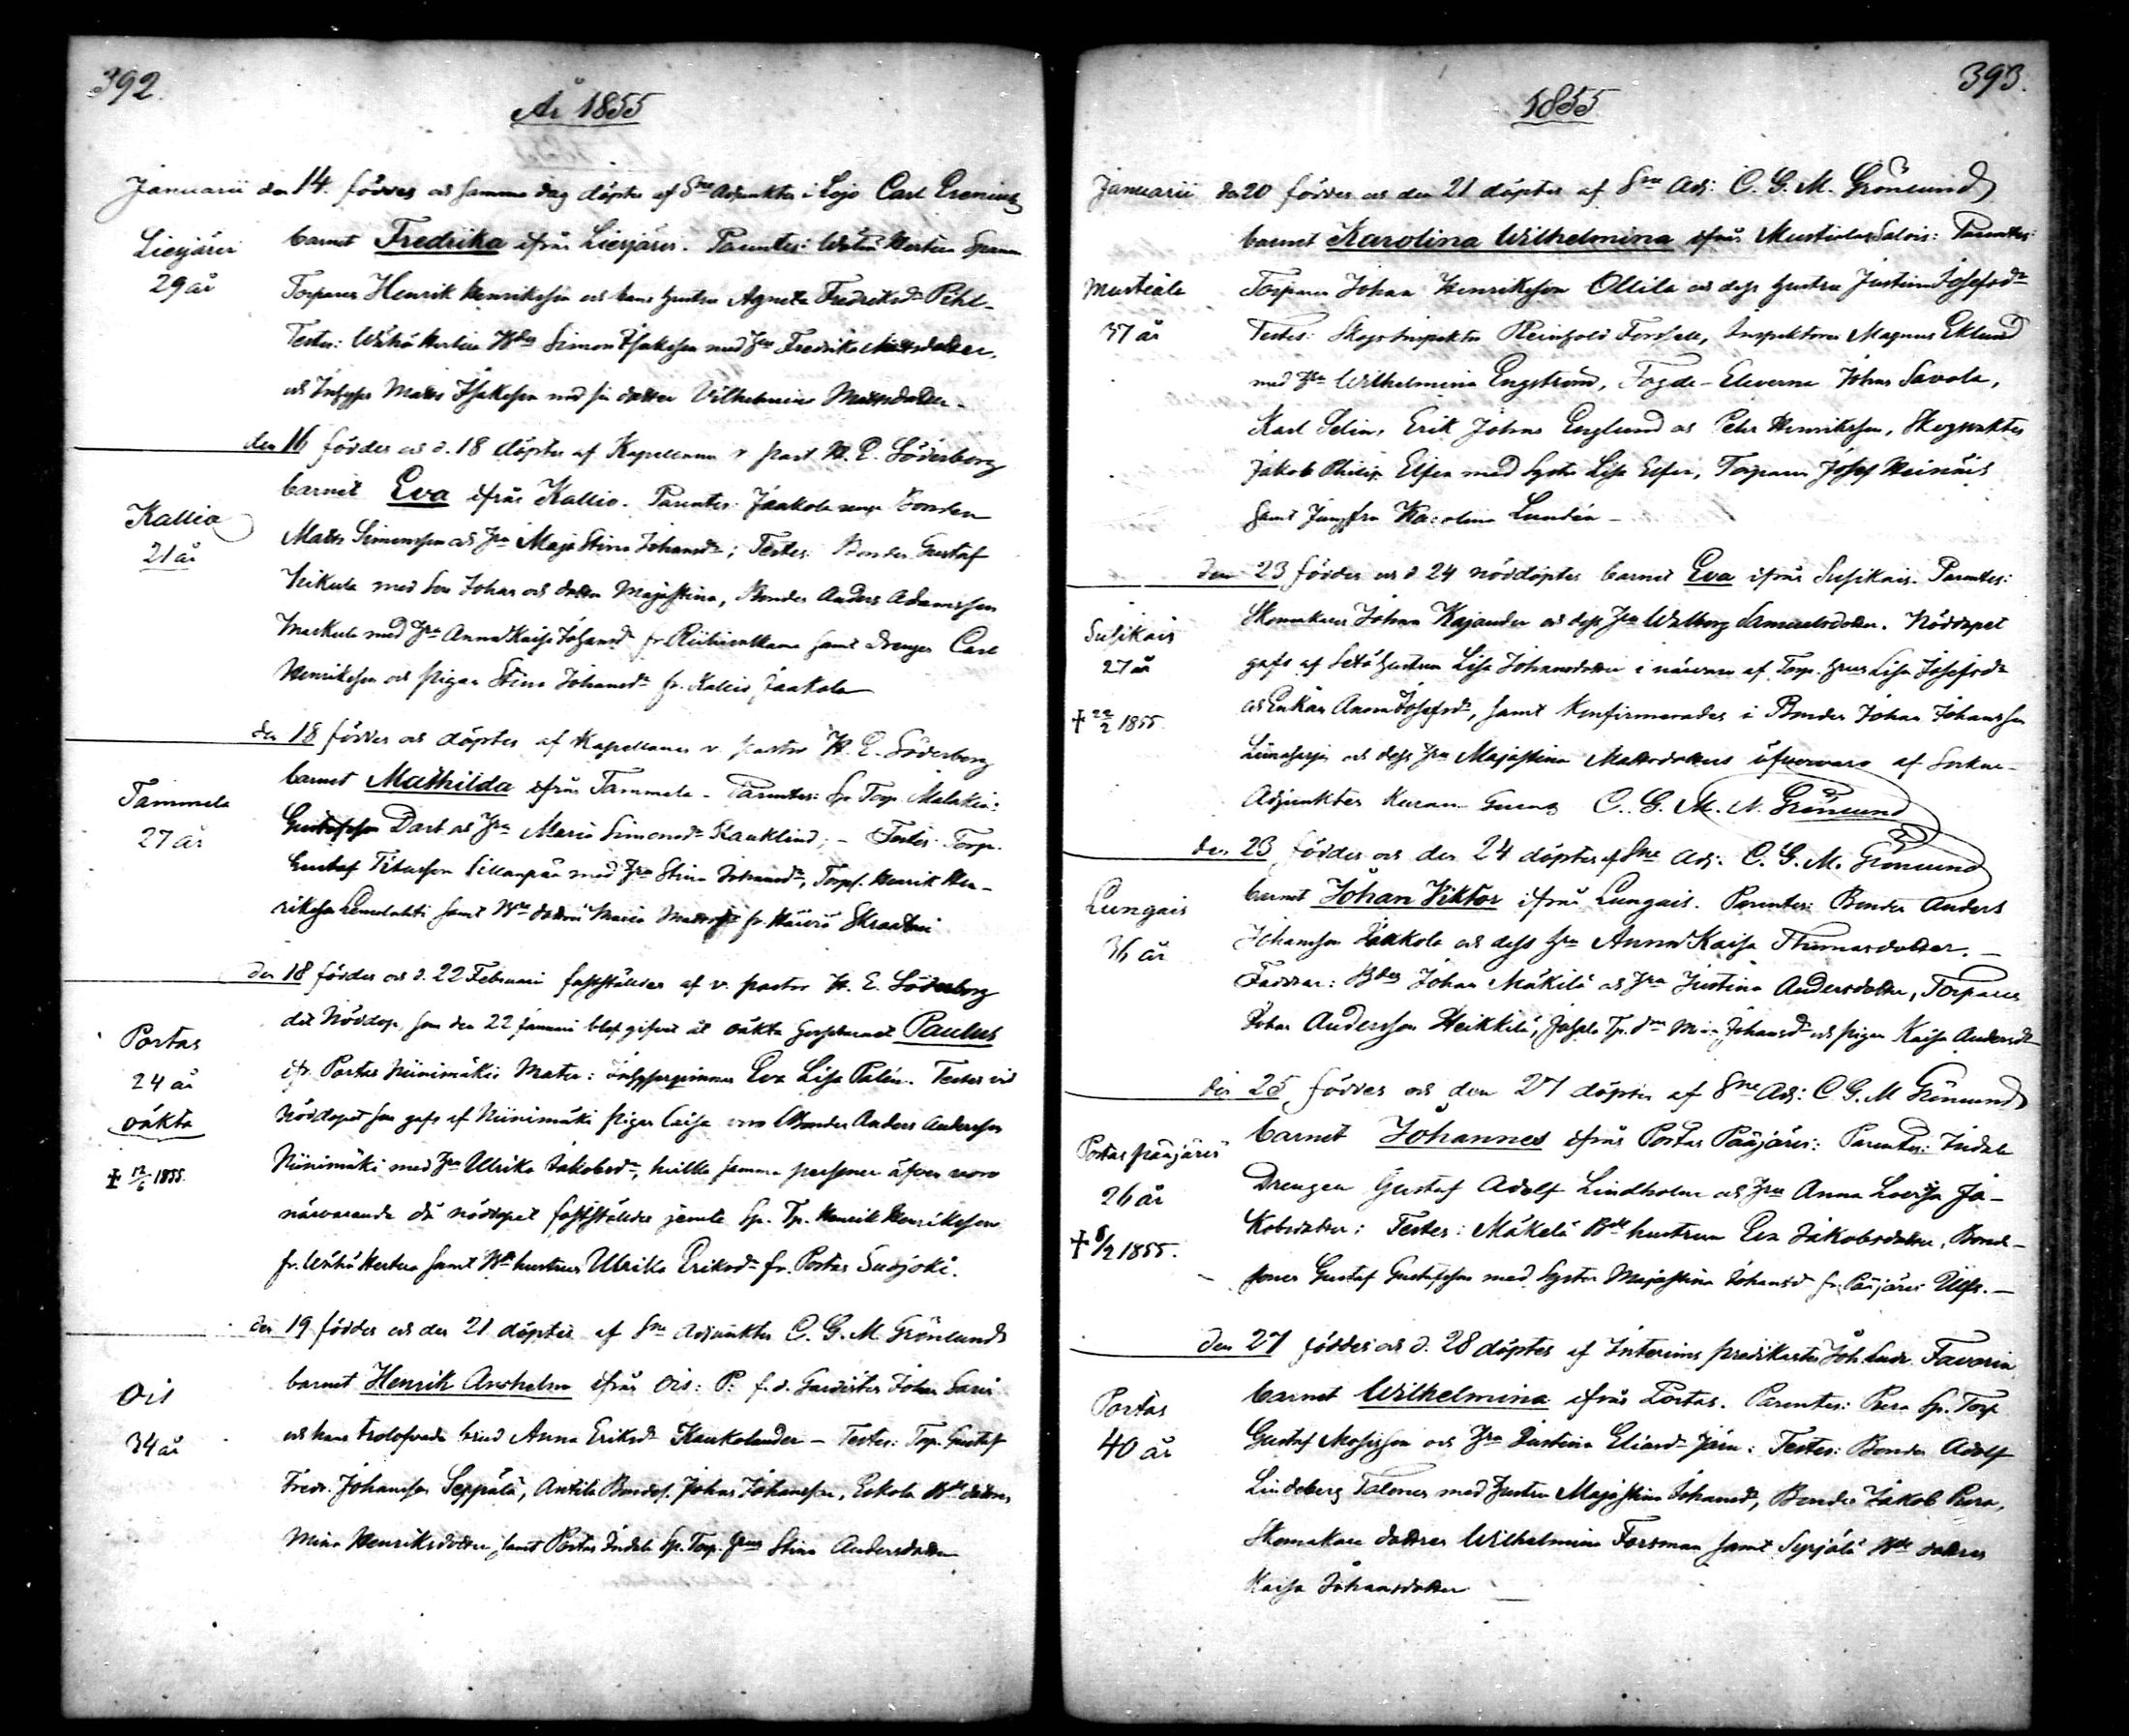 392.
År 1855
Januarii den 14. föddes och samma dag döptes af Sne Adjunkten i Lojo Carl Erenius
Liesjärvi
29 år
barnet Fredrika ifrån Liesjärvi. Parentes: Wähä Herttua Spann
Torparen Henrik Henriksson och hans hustru Agneta Fredriksdr Pihl-
Testes: Wähä Herttua Simon Isaksson med Hru Fredrika Mattsdotter,
och Inhyses Matts Isaksson med sin dotter Vilhelmina Mattsdotter.
den 16 föddes och d. 18 döptes af Kapellanen v. past. H. E. Söderborg
Kallio
21 år
barnet Eva ifrån Kallio. Parentes: Jaakola Bonden
Matts Simonsson och Hru Maja Stina Johansdr; Testes: Bonden Gustaf
med Son Johan och dotter Majastina, Bonden Anders Adamsson
med Hru Anna Kaisa Johansdr fr. samt Drengen Carl
Henriksson och pigan Stina Johansdr fr. Kallio Jaakola
den 18 föddes och döptes af Kapellanen v. pastor H. E. Söderborg
Tammela
27 år
barnet Mathilda ifrån Tammela - Parentes: Sp. Torp. Malakias
Gustafsson Dart och Hru Maria Simonsdr Rauklind; - Testes: Torp.
Gustaf Sillanpää med Hru Stina Johansdr, Torps. Henrik Hen-
riksson samt Bde dottren Maria Mattsdr fr. Skraatari
den 18 föddes och d. 22 Februari fastställdes af v. pastor H. E. Söderborg
Portas
24 år
oäkta
† 12/6 1855.
det Nöddop, som den 22 januari blef gifvet åt oäkta gossebarnet Paulus
ifr. Portas Niinimäki Mater: Inhysesqvinnan Eva Lisa Palén. Testes vid
Nöddopet som gafs af Niinimäki pigan Caisa voro Bonden Anders Andersson
Niinimäki med Hru Ulrika Jakobsdr, hvilka samma personer äfven voro
närvarande då nöddopet fastställdes jemte Sp. Tp. Henrik Henriksson
fr. Wähä Herttua samt Bde hustrun Ulrika Eriksdr fr. Portas Susijoki.
den 19 föddes och den 21 döptes af Sne Adjunkten C. G. M. Grönlund
Ois
34 år
barnet Henrik Anshelm ifrån Ois: P: f. d. Gardisten Johan Saxi
och hans trolofvade brud Anna Eriksdr Kaukolander - Testes: Torp. Gustaf
Fredr. Johansson Seppälä, Anttila Bondes. Johan Johansson, Eskola Bde dottren
Mina Henriksdotter, samt Portas Sp. Torp. Hrus Stina Andersdotter
393.
1855
Januarii den 20 föddes och den 21 döptes af Sne Adj: C. G. M. Grönlund
Mustiala
37 år
barnet Karolina Wilhelmina ifrån Mustiala Salois: Parentes:
Torparen Johan Henriksson Ollila och dess hustru Justina Josefsdr
Testes: Skogsinspektor Reinhold Forssell, Inspektoren Magnus Eklund
med Hru Wilhelmina Engström, Fogde-Eleverne Johan Savola,
Karl Selin, Erik Johan Englund och Petr Henriksson, Skogvakten
Jakob Philip Elfen med Syster Lisa Elfen, Torparen Josef Heinäis
samt Jungfru Karolina Lundén -
den 23 föddes och d 24 nöddöptes barnet Eva ifrån Susikais. Parentes:
Susikais
27 år
† 22/2 1855.
Skomakaren Johan Kajander och dess Hru Walborg Samuelsdotter. Nöddopet
gafs af hustrun Lisa Johansdotter i närvaro af Torp. Hrus Lisa Josefsdr
och Enkan Anna Josefsdr, samt Konfirmerades i Bonden Johan Johansson
och dess Hru Majastina Mattsdotters öfvervaro af Sockne-
Adjunkten C. G. M. N. Grönlund
den 23 föddes och den 24 döptes af Sne Adj: C. G. M. Grönlund
Lungais
36 år
barnet Johan Viktor ifrån Lungais. Parentes: Bonden Anders
Johansson Jaakola och dess Hru Anna Kaisa Thomasdotter. -
Faddrar: Bden Johan Mäkilä och Hru Justina Andersdotter, Torparen
Johan Andersson Heikkilä, Johansdr och pigan Kaisa Andersdr
den 25 föddes och den 27 döptes af Sne Adj: C G. M Grönlund
Portas pääjärvi
26 år
† 8/2 1855.
barnet Johannes ifrån Portas Pääjärvi: Parentes:
Drengen Gustaf Adolf Lindholm och Hru Anna Lovisa Ja-
kobsdotter; Testes: Mäkelä Bde hustrun Eva Jakobsdotter, Bond-
sonen Gustaf Gustafsson med Syster Majastina Johansd fr. Pääjärvi Ulfs. -
Den 27 föddes och d. 28 döptes af Interims predikanten Joh. Ludv. Favorin
Portas
40 år
barnet Wilhelmina ifrån Portas. Parentes: Pera Sp. Torp
Gustaf Mosisson och Hru Justina Eliasdr Järn: Testes: Bonden Adolf
Lindeberg Talonen med hustru Majastina Johansdr, Bonden Jakob Pera,
Skomakare dottren Wilhelmina Forsman samt Syrjälä Bde dottren
Kaisa Johansdotter -